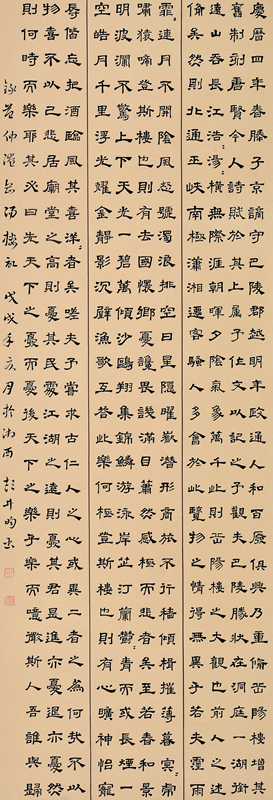 慶曆四年春滕子京謫守巴陵郡越明年政通人和百廢俱興乃重脩岳陽樓增其
舊制刻唐賢今人詩賦於其上屬予作文以記之予觀夫巴陵勝狀在洞庭一湖銜
遠山吞長江浩〻湯〻橫無際涯朝暉夕陰氣象萬千此則岳陽樓之大觀也前人之述
備矣然則北通巫峽南極瀟湘遷客騷人多會於此覽物之情得無異乎若夫霪雨
霏〻連月不開陰風怒號濁浪排空日星隱曜山嶽潛形商旅不行檣傾楫摧薄暮冥〻虎
嘯猿啼登斯樓也則有去國懷鄉憂讒畏譏滿目蕭然感極而悲者矣至若春和景
明波瀾不驚上下天光一碧萬頃沙鷗翔集錦鱗游泳岸芷汀蘭鬱〻青〻而或長煙一
空皓月千里浮光耀金靜影沉璧漁歌互答此樂何極登斯樓也則有心曠神怡寵
辱偕忘把酒臨風其喜洋〻者矣嗟夫予嘗求古仁人之心或異二者之為何哉不以
物喜不以己悲居廟堂之高則憂其民處江湖之遠則憂其君是進亦憂退亦憂然
則何時而樂耶其必曰先天下之憂而憂後天下之樂而樂乎噫微斯人吾誰與歸
錄范仲淹岳陽樓記 戊戌年亥月於湘西 彭井昀書